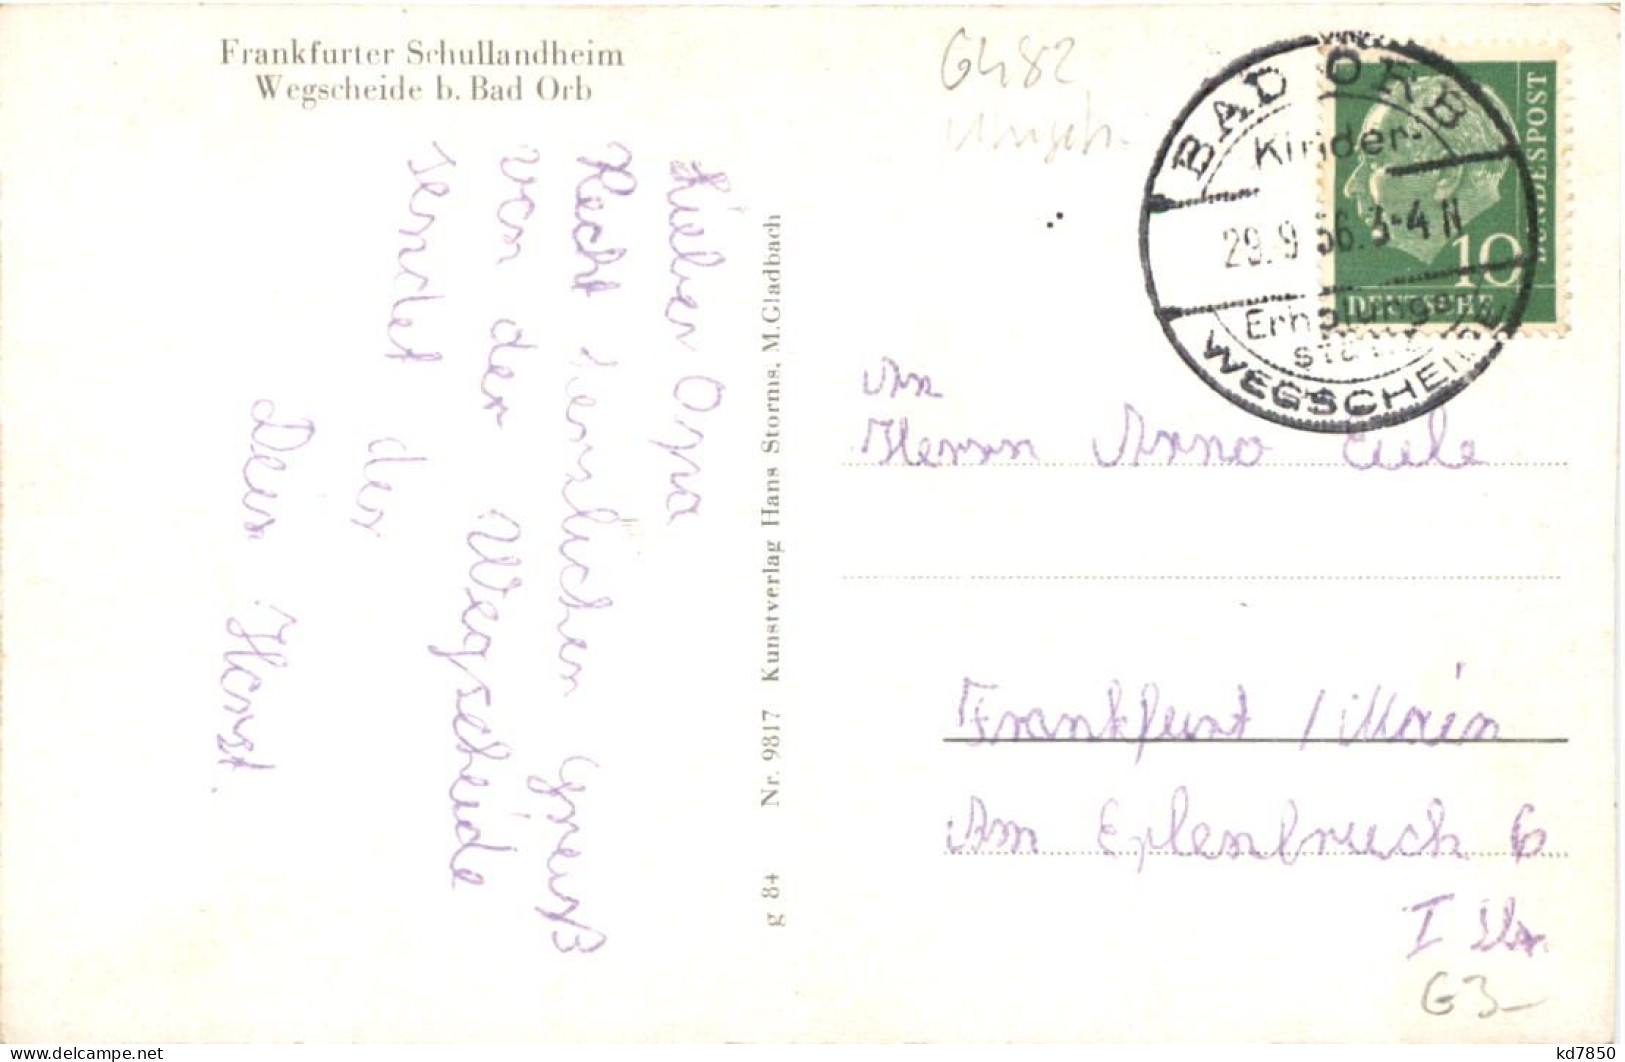 Frankfurter Schullandheim
Wegscheide b. Bad Orb
Lieber Opa
Recht herzlichen Gruß
von der Wegscheide
sendet
der
Dein Horst.
g 84 Nr. 9817 Kunstverlag Hans Storms, M.Gladbach
6482
BAD ORB
Kinder-
29.9.56.3-4 N
Erholungs
WEGSCHEIDE
BUNDESPOST
10
DEUTSCHE
An
Herrn Arno Eile
Frankfurt / Main
Am Erlenbruch 6
I
G3-
kd7850